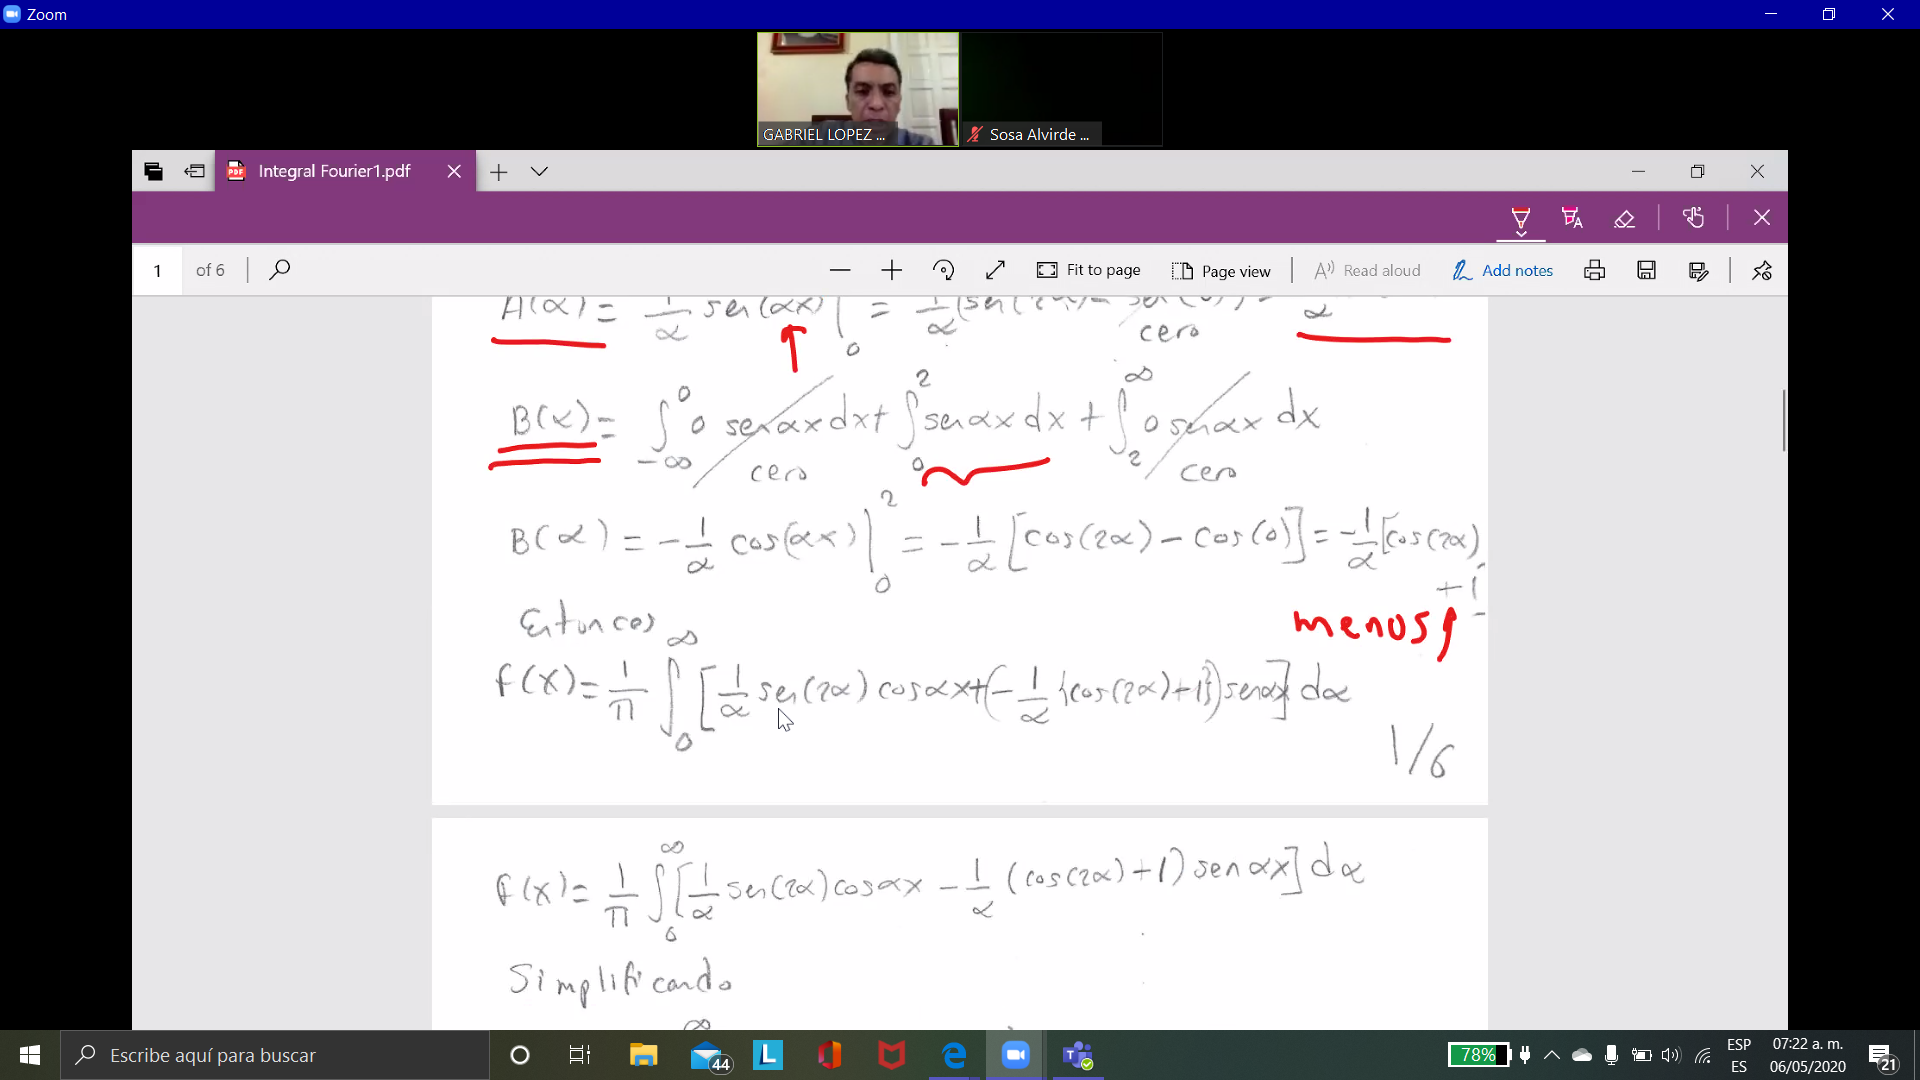 Zoom
GABRIEL LOPEZ ...
Sosa Alvirde ...
Integral Fourier1.pdf
1 of 6
Fit to page
Page view
Read aloud
Add notes
A(α) = 1/α sen(αx) |₀ = 1/α (sen(2α) - sen(0)) =
cero
B(α) = ∫_{-∞}^{0} 0 sen αx dx + ∫_{0}^{2} sen αx dx + ∫_{2}^{∞} 0 sen αx dx
cero cero
B(α) = -1/α cos(αx) |₀² = -1/α [cos(2α) - cos(0)] = -1/α [cos(2α)
+1
Entonces
menos
f(x) = 1/π ∫₀^∞ [1/α sen(2α) cos αx + (-1/α {cos(2α)+1}) sen αx] dα
1/6
f(x) = 1/π ∫₀^∞ [1/α sen(2α) cos αx - 1/α (cos(2α)+1) sen αx] dα
Simplificando
∞
Escribe aquí para buscar
44
L
78%
ESP
ES
07:22 a. m.
06/05/2020
21